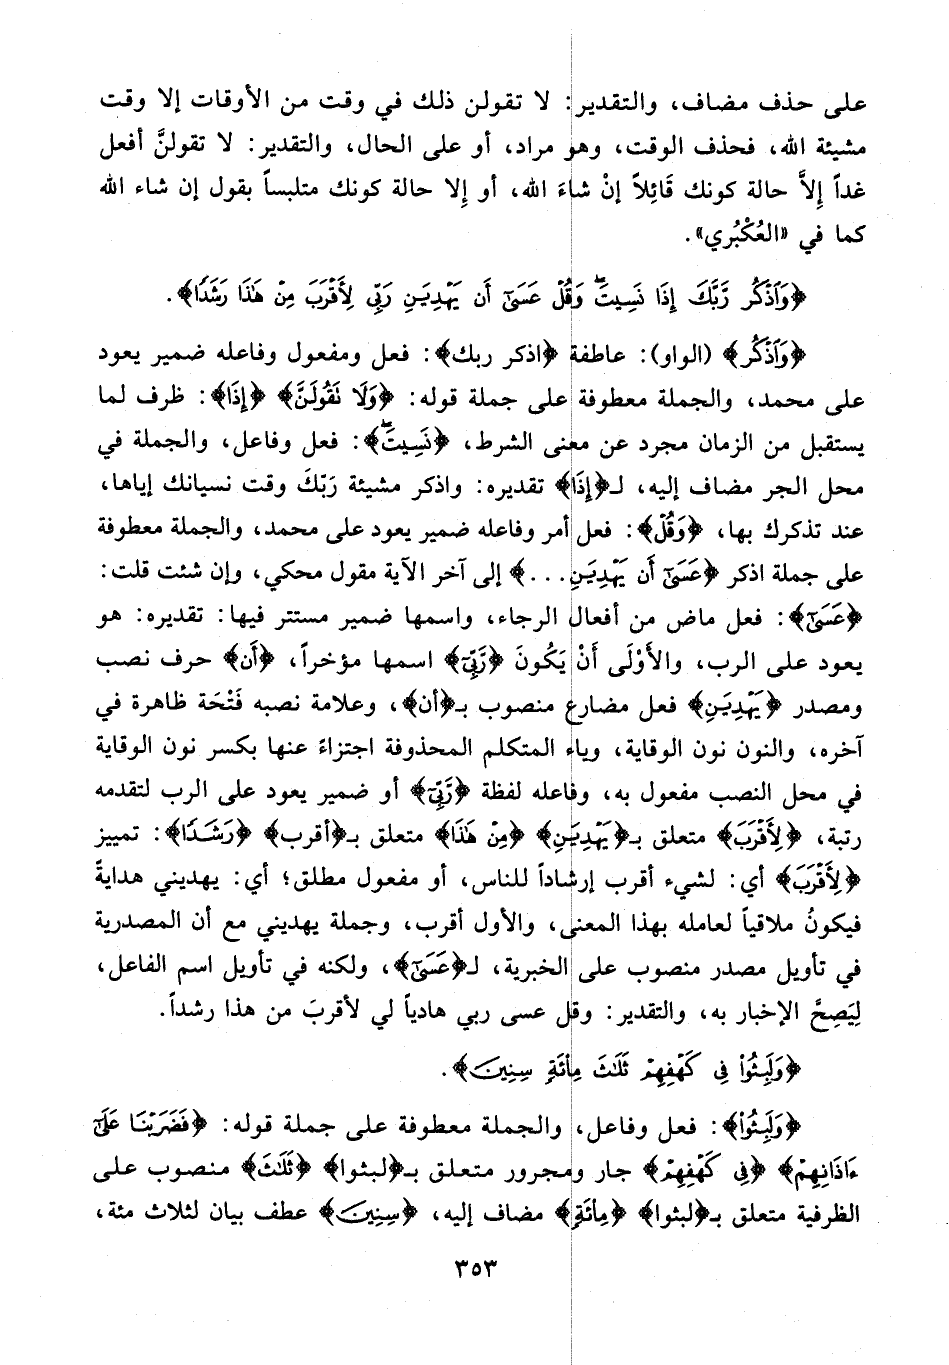 على حذف مضاف، والتقدير: لا تقولن ذلك في وقت من الأوقات إلا وقت
مشيئة الله، فحذف الوقت، وهو مراد، أو على الحال، والتقدير: لا تقولنَّ أفعل
غداً إِلاَّ حالة كونك قَائِلاً إنْ شاءَ الله، أو إِلا حالة كونك متلبساً بقول إن شاء الله
كما في «العُكْبُري».
﴿وَٱذْكُر رَّبَّكَ إِذَا نَسِيتَ ۖ وَقُلْ عَسَىٰٓ أَن يَهْدِيَنِ رَبِّى لِأَقْرَبَ مِنْ هَٰذَا رَشَدًا﴾.
﴿وَٱذْكُر﴾ (الواو): عاطفة ﴿اذكر ربك﴾: فعل ومفعول وفاعله ضمير يعود
على محمد، والجملة معطوفة على جملة قوله: ﴿وَلَا تَقُولَنَّ﴾ ﴿إِذَا﴾: ظرف لما
يستقبل من الزمان مجرد عن معنى الشرط، ﴿نَسِيتَ ۖ﴾: فعل وفاعل، والجملة في
محل الجر مضاف إليه، لـ﴿إِذَا﴾ تقديره: واذكر مشيئة رَبّكَ وقت نسيانك إياها،
عند تذكرك بها، ﴿وَقُلْ﴾: فعل أمر وفاعله ضمير يعود على محمد، والجملة معطوفة
على جملة اذكر ﴿عَسَىٰٓ أَن يَهْدِيَنِ...﴾ إلى آخر الآية مقول محكي، وإن شئت قلت:
﴿عَسَىٰٓ﴾: فعل ماض من أفعال الرجاء، واسمها ضمير مستتر فيها: تقديره: هو
يعود على الرب، والأَوْلَى أَنْ يَكُونَ ﴿رَبِّى﴾ اسمها مؤخراً، ﴿أَن﴾ حرف نصب
ومصدر ﴿يَهْدِيَنِ﴾ فعل مضارع منصوب بـ﴿أن﴾، وعلامة نصبه فَتْحَة ظاهرة في
آخره، والنون نون الوقاية، وياء المتكلم المحذوفة اجتزاءً عنها بكسر نون الوقاية
في محل النصب مفعول به، وفاعله لفظة ﴿رَبِّى﴾ أو ضمير يعود على الرب لتقدمه
رتبة، ﴿لِأَقْرَبَ﴾ متعلق بـ﴿يَهْدِيَنِ﴾ ﴿مِنْ هَٰذَا﴾ متعلق بـ﴿أقرب﴾ ﴿رَشَدًا﴾: تمييز
﴿لِأَقْرَبَ﴾ أي: لشيء أقرب إرشاداً للناس، أو مفعول مطلق؛ أي: يهديني هدايةً
فيكونُ ملاقياً لعامله بهذا المعنى، والأول أقرب، وجملة يهديني مع أن المصدرية
في تأويل مصدر منصوب على الخبرية، لـ﴿عَسَىٰٓ﴾، ولكنه في تأويل اسم الفاعل،
لِيَصِحَّ الإخبار به، والتقدير: وقل عسى ربي هادياً لي لأقربَ من هذا رشداً.
﴿وَلَبِثُوا۟ فِى كَهْفِهِمْ ثَلَٰثَ مِا۟ئَةٍ سِنِينَ﴾.
﴿وَلَبِثُوا۟﴾: فعل وفاعل، والجملة معطوفة على جملة قوله: ﴿فَضَرَبْنَا عَلَىٰٓ
ءَاذَانِهِمْ﴾ ﴿فِى كَهْفِهِمْ﴾ جار ومجرور متعلق بـ﴿لبثوا﴾ ﴿ثَلَٰثَ﴾ منصوب على
الظرفية متعلق بـ﴿لبثوا﴾ ﴿مِا۟ئَةٍ﴾ مضاف إليه، ﴿سِنِينَ﴾ عطف بيان لثلاث مئة،
٣٥٣